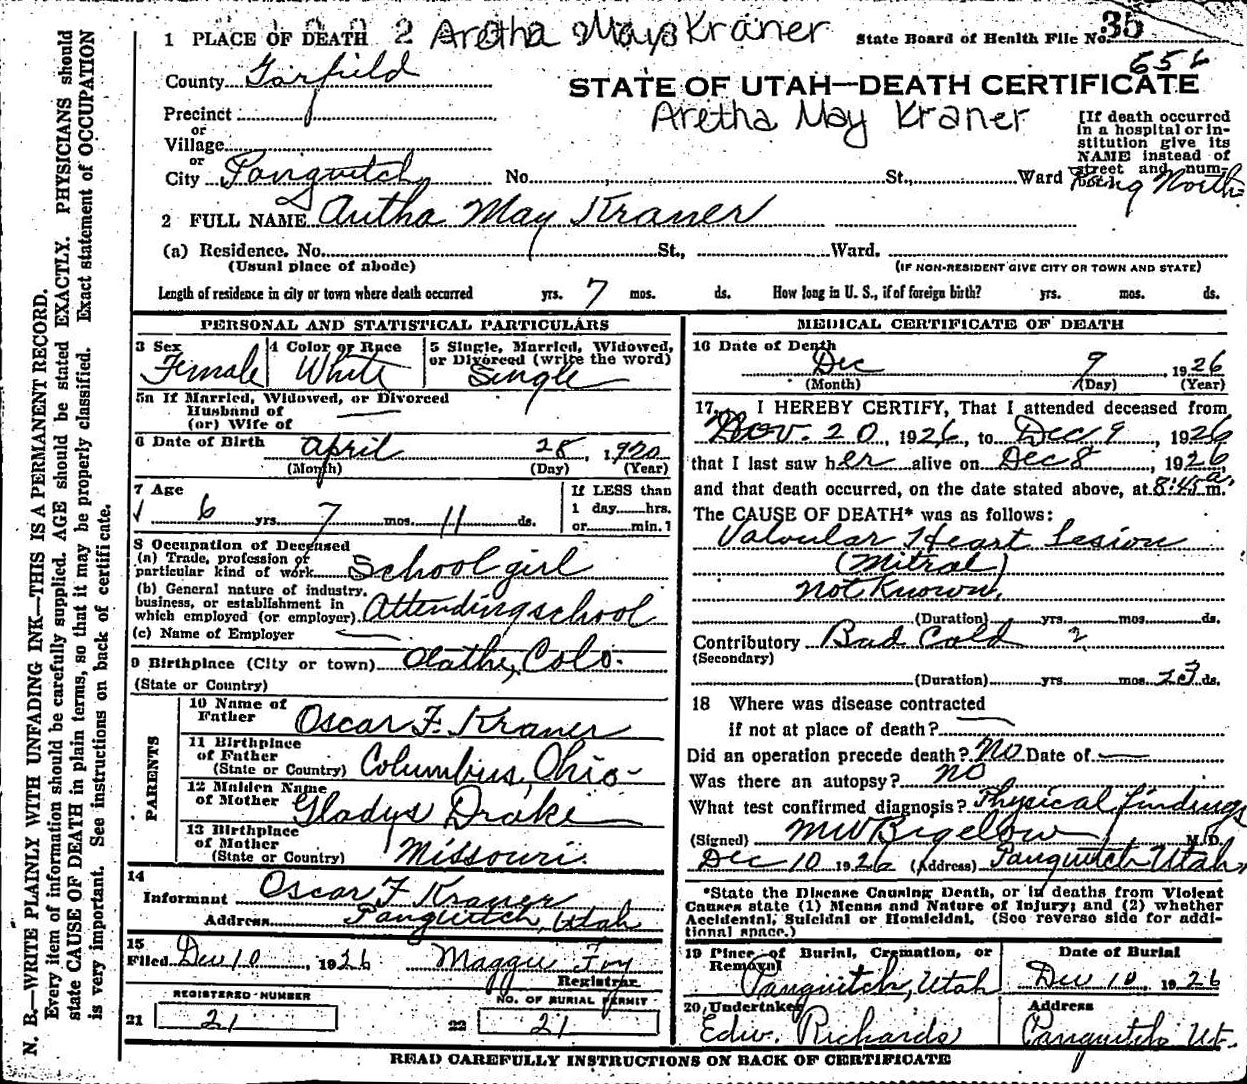 1 PLACE OF DEATH 2 Aretha May Kraner State Board of Health File No. 35
656
County Garfield
STATE OF UTAH—DEATH CERTIFICATE
Aretha May Kraner
Precinct
or
Village
or
City Panguitch No. St., Ward
[If death occurred
in a hospital or in-
stitution give its
NAME instead of
street and num-
North
2 FULL NAME Aretha May Kraner
(a) Residence. No. St., Ward.
(Usual place of abode) (IF NON-RESIDENT GIVE CITY OR TOWN AND STATE)
Length of residence in city or town where death occurred yrs. 7 mos. ds. How long in U. S., if of foreign birth? yrs. mos. ds.
PERSONAL AND STATISTICAL PARTICULARS
3 Sex 4 Color or Race 5 Single, Married, Widowed,
or Divorced (write the word)
Female White Single
5a If Married, Widowed, or Divorced
Husband of
(or) Wife of
6 Date of Birth April 28, 1920
(Month) (Day) (Year)
7 Age If LESS than
6 yrs. 7 mos. 11 ds. 1 day hrs.
or min. 1
8 Occupation of Deceased
(a) Trade, profession or
particular kind of work School girl
(b) General nature of industry,
business, or establishment in
which employed (or employer) Attending school
(c) Name of Employer
9 Birthplace (City or town) Olathe, Colo.
(State or Country)
PARENTS
10 Name of
Father Oscar F. Kraner
11 Birthplace
of Father
(State or Country) Columbus, Ohio
12 Maiden Name
of Mother Gladys Drake
13 Birthplace
of Mother
(State or Country) Missouri
14
Informant Oscar F. Kraner
Address Panguitch, Utah
15
Filed Dec 10, 1926 Maggie Foy
Registrar
REGISTERED NUMBER NO. OF BURIAL PERMIT
21 21 22 21
MEDICAL CERTIFICATE OF DEATH
16 Date of Death
Dec 9 1926
(Month) (Day) (Year)
17. I HEREBY CERTIFY, That I attended deceased from
Nov. 20, 1926, to Dec 9, 1926
that I last saw her alive on Dec 8, 1926,
and that death occurred, on the date stated above, at 8:45 a.m.
The CAUSE OF DEATH* was as follows:
Valvular Heart Lesion
(Mitral)
Not Known.
(Duration) yrs. mos. ds.
Contributory Bad Cold
(Secondary)
(Duration) yrs. mos. 23 ds.
18 Where was disease contracted
if not at place of death?
Did an operation precede death? No Date of
Was there an autopsy? No
What test confirmed diagnosis? Physical findings
(Signed) M W Bigelow M. D.
Dec 10 1926 (Address) Panguitch Utah
*State the Disease Causing Death, or in deaths from Violent
Causes state (1) Means and Nature of Injury; and (2) whether
Accidental, Suicidal or Homicidal. (See reverse side for addi-
tional space.)
19 Place of Burial, Cremation, or
Removal Panguitch, Utah
Date of Burial
Dec 10, 1926
20 Undertaker Address
Edw. Richards Panguitch Ut.
READ CAREFULLY INSTRUCTIONS ON BACK OF CERTIFICATE
N. B.—WRITE PLAINLY WITH UNFADING INK—THIS IS A PERMANENT RECORD.
Every item of information should be carefully supplied. AGE should be stated EXACTLY. PHYSICIANS should
state CAUSE OF DEATH in plain terms, so that it may be properly classified. Exact statement of OCCUPATION
is very important. See instructions on back of certificate.